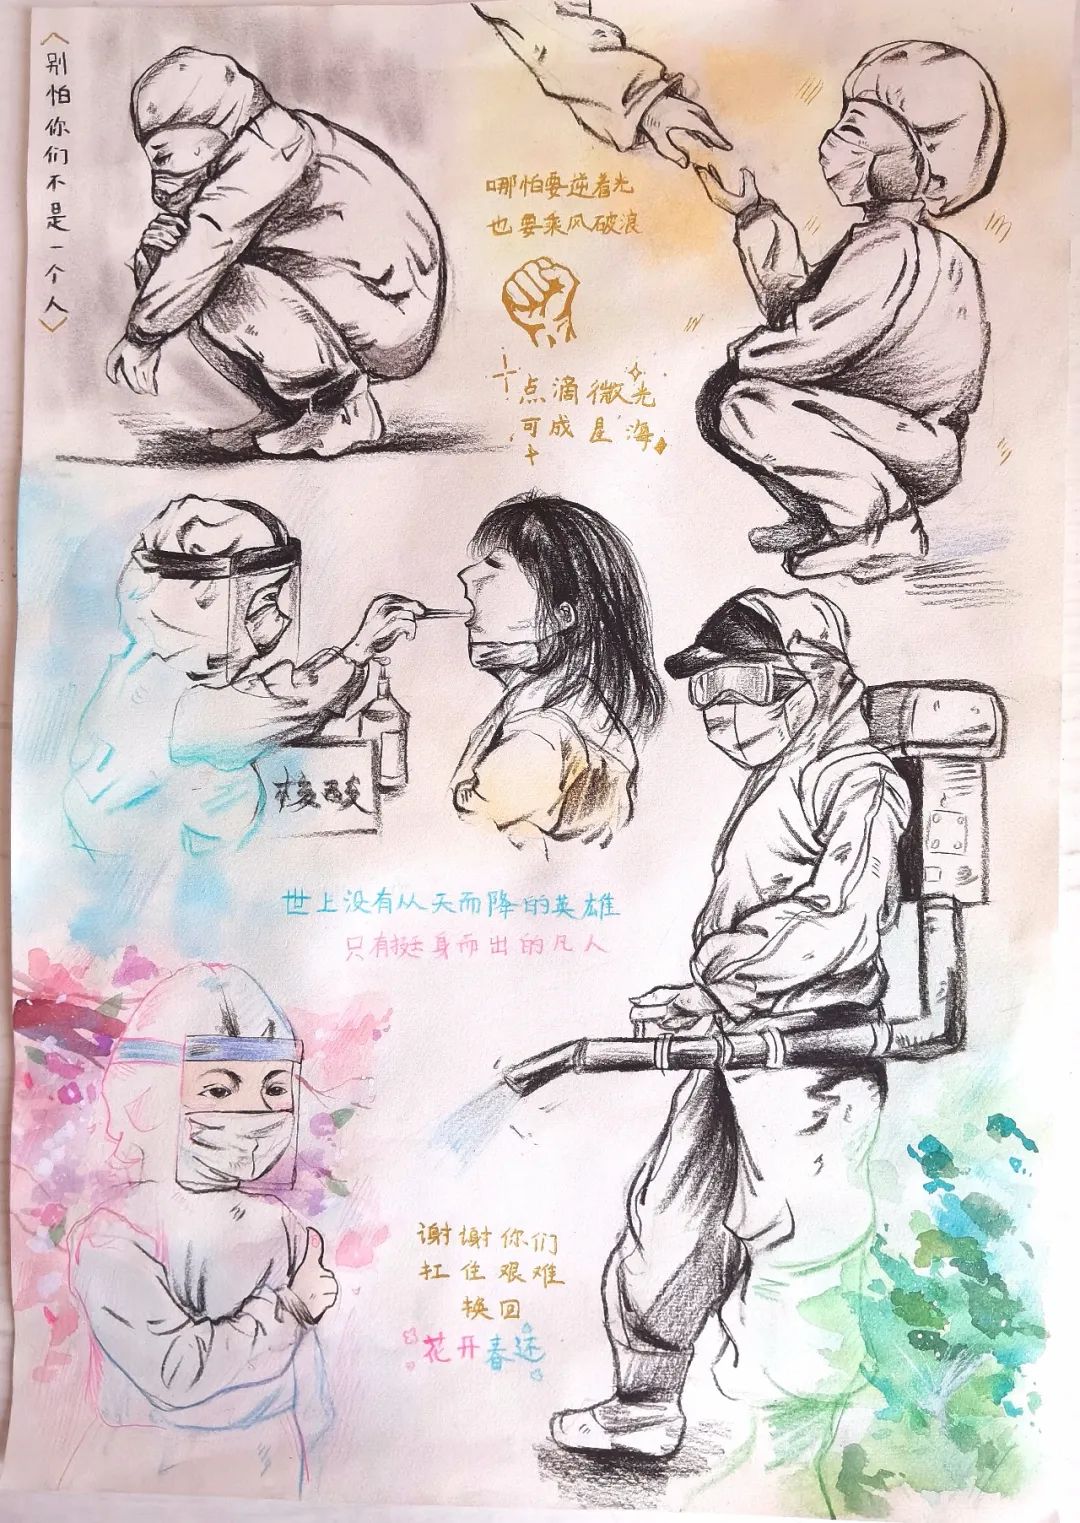 〈别怕你们不是一个人〉
哪怕要逆着光
也要乘风破浪
点滴微光
可成星海
核酸
世上没有从天而降的英雄
只有挺身而出的凡人
谢谢你们
扛住艰难
换回
花开春还